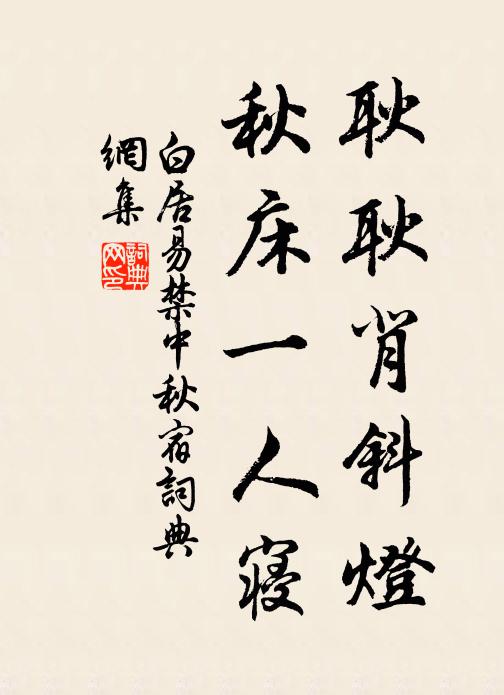 耿耿背斜燈
秋床一人寝
白居易禁中秋宿詞典
網集
詞典网印